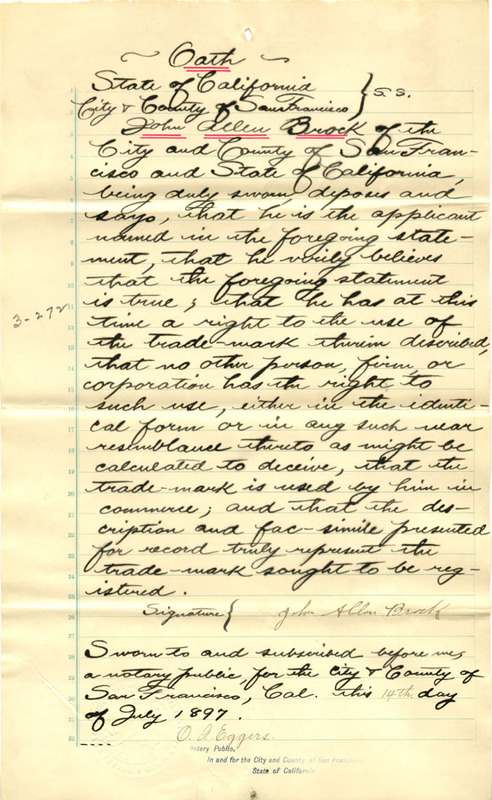 ~ Oath ~
State of California } S.S.
City & County of San Francisco
John Allen Brock of the
City and County of San Fran-
cisco and State of California,
being duly sworn, deposes and
says, that he is the applicant
named in the foregoing state-
ment, that he verily believes
that the foregoing statement
is true; that he has at this
3-272
time a right to the use of
the trade-mark therein described,
that no other person, firm, or
corporation has the right to
such use, either in the identi-
cal form or in any such near
resemblance thereto as might be
calculated to deceive, that the
trade-mark is used by him in
commerce; and that the des-
cription and fac-simile presented
for record truly represent the
trade-mark sought to be reg-
istered.
Signature { John Allen Brock
Sworn to and subscribed before me,
a notary public, for the City & County of
San Francisco, Cal. this 14th day
of July 1897.
O. A. Eggers.
Notary Public,
In and for the City and County of San Francisco
State of California